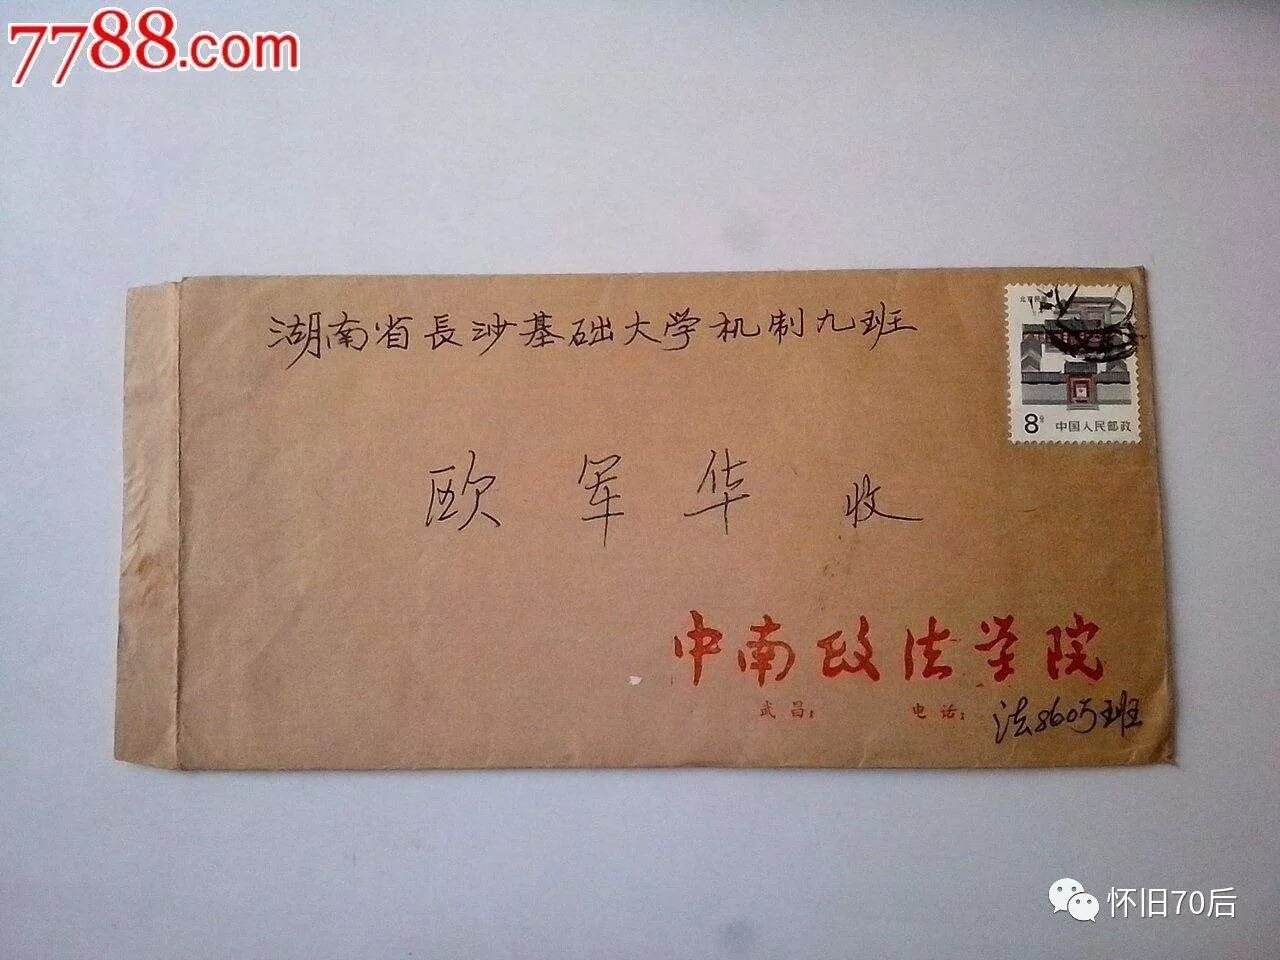 7788.com
湖南省長沙基础大学机制九班
北京民居
8分 中国人民邮政
欧军华 收
中南政法学院
武昌： 电话：
法8605班
怀旧70后